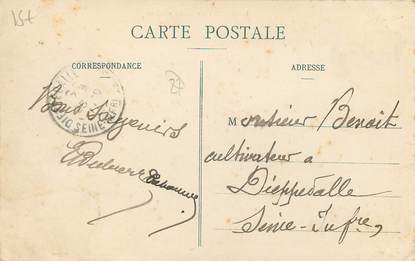 15t
CARTE POSTALE
CORRESPONDANCE
ADRESSE
Bons Souvenirs
Monsieur Benoit
cultivateur a
Dieppedalle
Seine-Infre